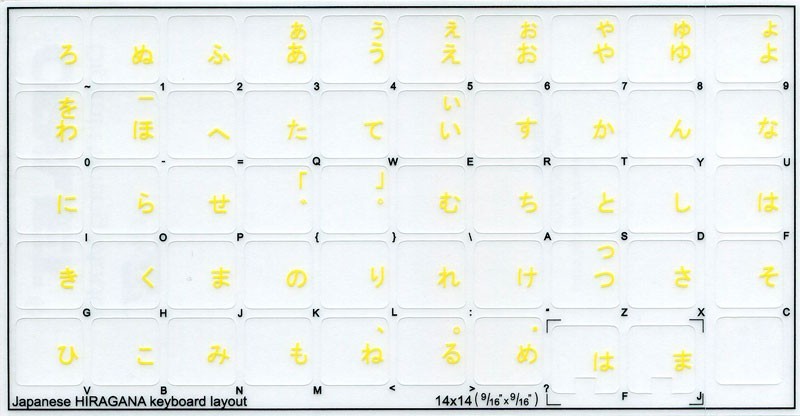 ぁ ぅ ぇ ぉ ゃ ゅ ょ
ろ ぬ ふ あ う え お や ゆ よ
~ 1 2 3 4 5 6 7 8 9
を ー ぃ
わ ほ へ た て い す か ん な
0 - = Q W E R T Y U
「 」
に ら せ ゛ ゜ む ち と し は
I O P { } \ A S D F
っ
き く ま の り れ け つ さ そ
G H J K L : " Z X C
、 。 ・
ひ こ み も ね る め は ま
V B N M < > ? F J
Japanese HIRAGANA keyboard layout 14x14 (9/16" x 9/16")